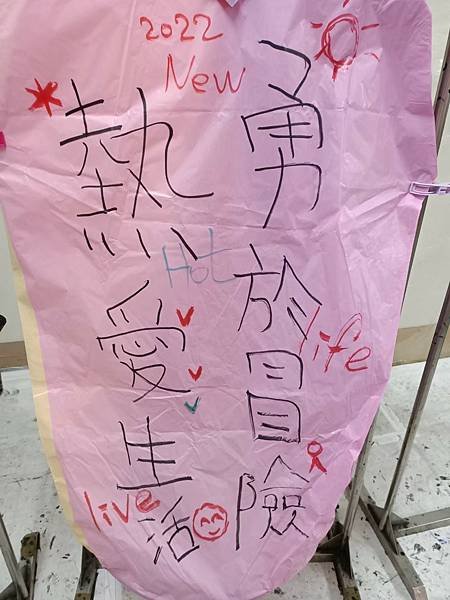 2022
New
勇於冒險
熱愛生活
Hot
life
live